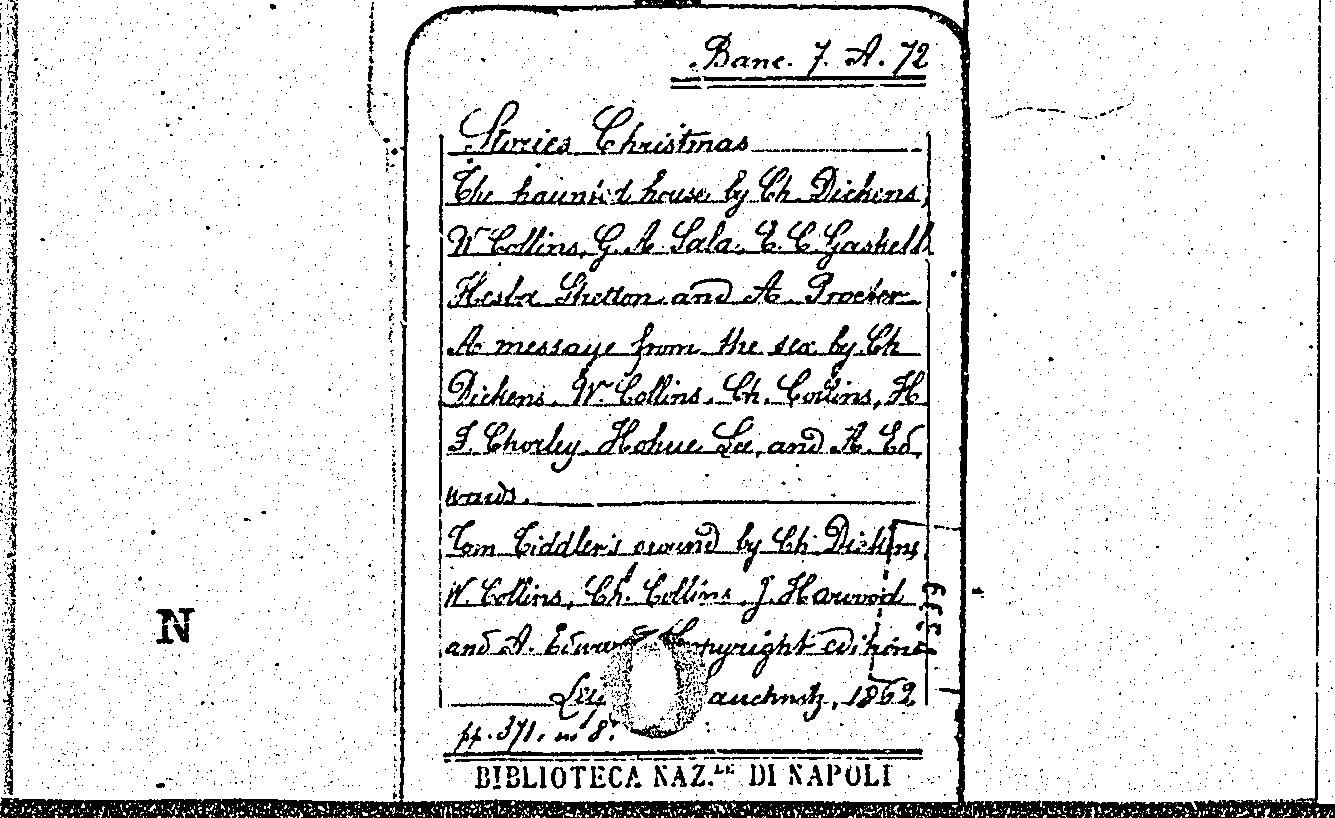 Banc. 7. A. 72
Stories Christmas
The haunted house by Ch. Dickens,
W Collins, G. A. Sala, E. C. Gaskell
Hesba Stretton and A. Procter
A message from the sea by Ch
Dickens, W. Collins, Ch. Collins, H
F. Chorley, Holme Lee, and A. Ed
wards.
Tom Tiddler's ground by Ch Dickens
W. Collins, Ch. Collins, J. Harwood
and A. Copyright edition
1862
pp. 371. in 8.
N
BIBLIOTECA NAZ.LE DI NAPOLI